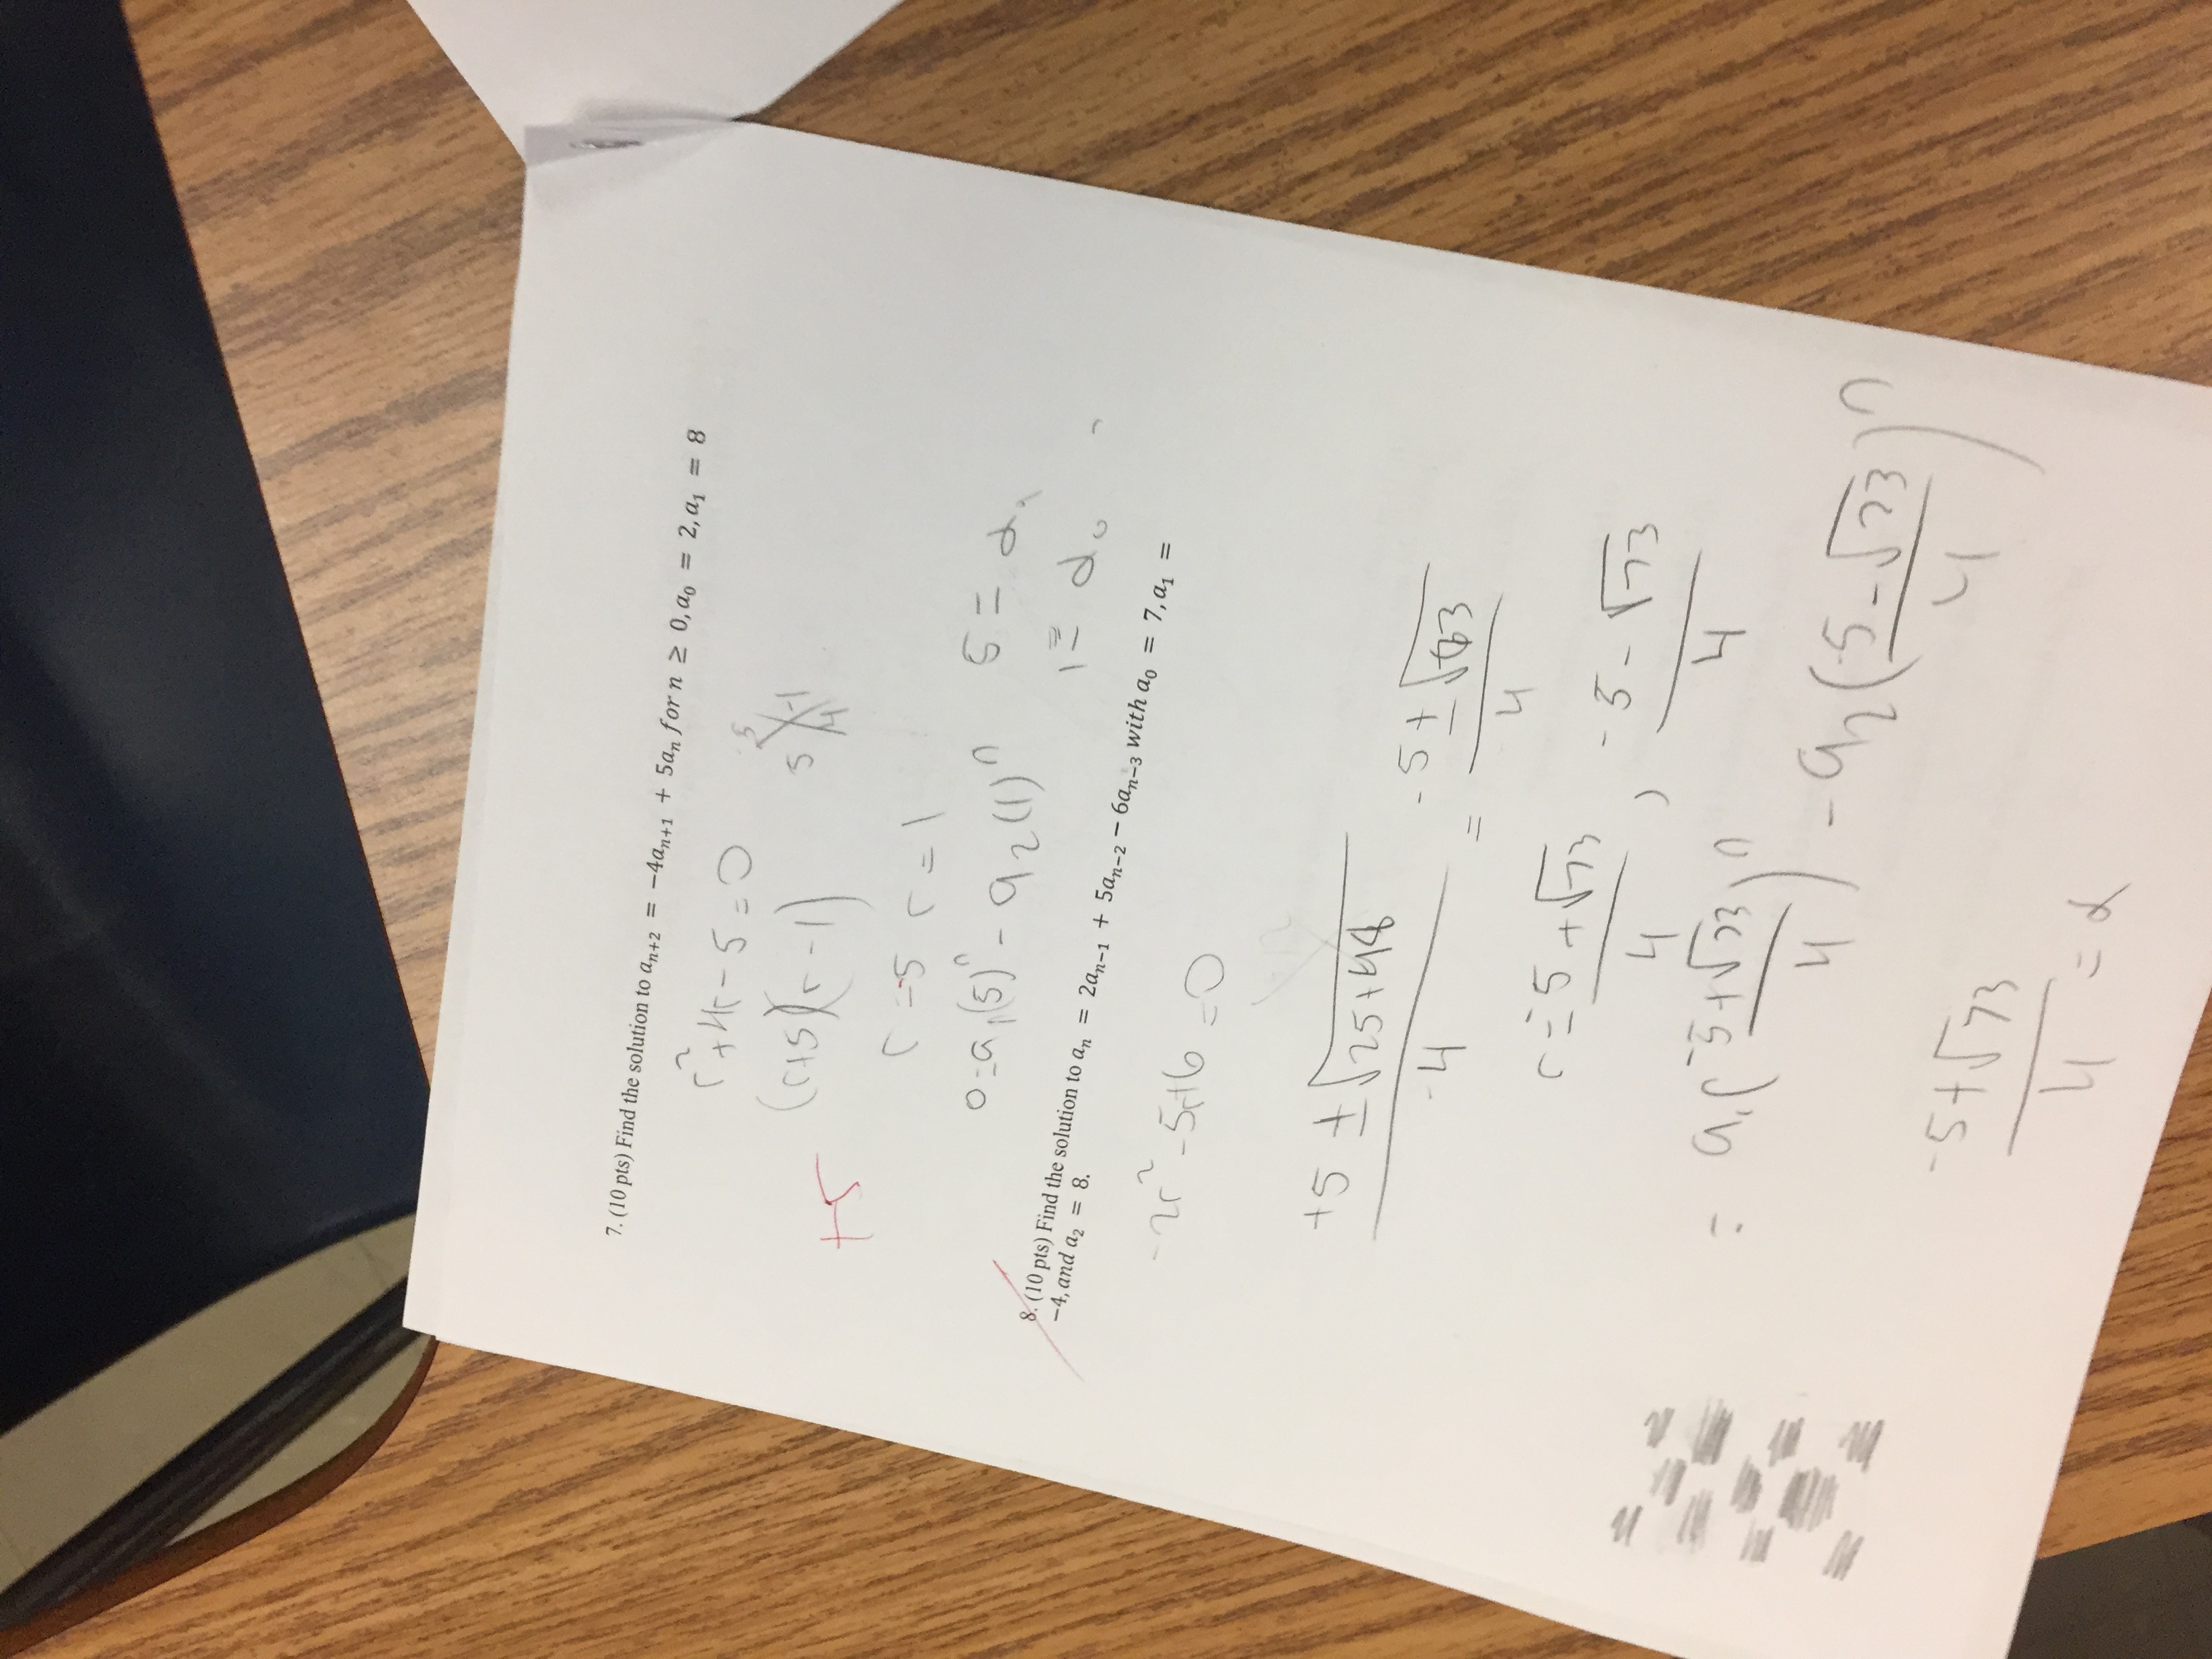 7. (10 pts) Find the solution to aₙ₊₂ = −4aₙ₊₁ + 5aₙ for n ≥ 0, a₀ = 2, a₁ = 8
r² + 4r − 5 = 0
(r+5)(r−1)
5
5 -1
4
+5
r = -5 r = 1
0 = a₁(5)ⁿ − a₂(1)ⁿ
5 = α₁
1 = α₀
8. (10 pts) Find the solution to aₙ = 2aₙ₋₁ + 5aₙ₋₂ − 6aₙ₋₃ with a₀ = 7, a₁ =
−4, and a₂ = 8.
-2r² − 5r + 6 = 0
+5 ± √25+48
-4
= -5 ± √73
4
r = -5 + √73
4
, -5 − √73
4
= a₁(-5+√73
4)ⁿ
− a₂(-5−√73
4)ⁿ
-5+√73
4 = α